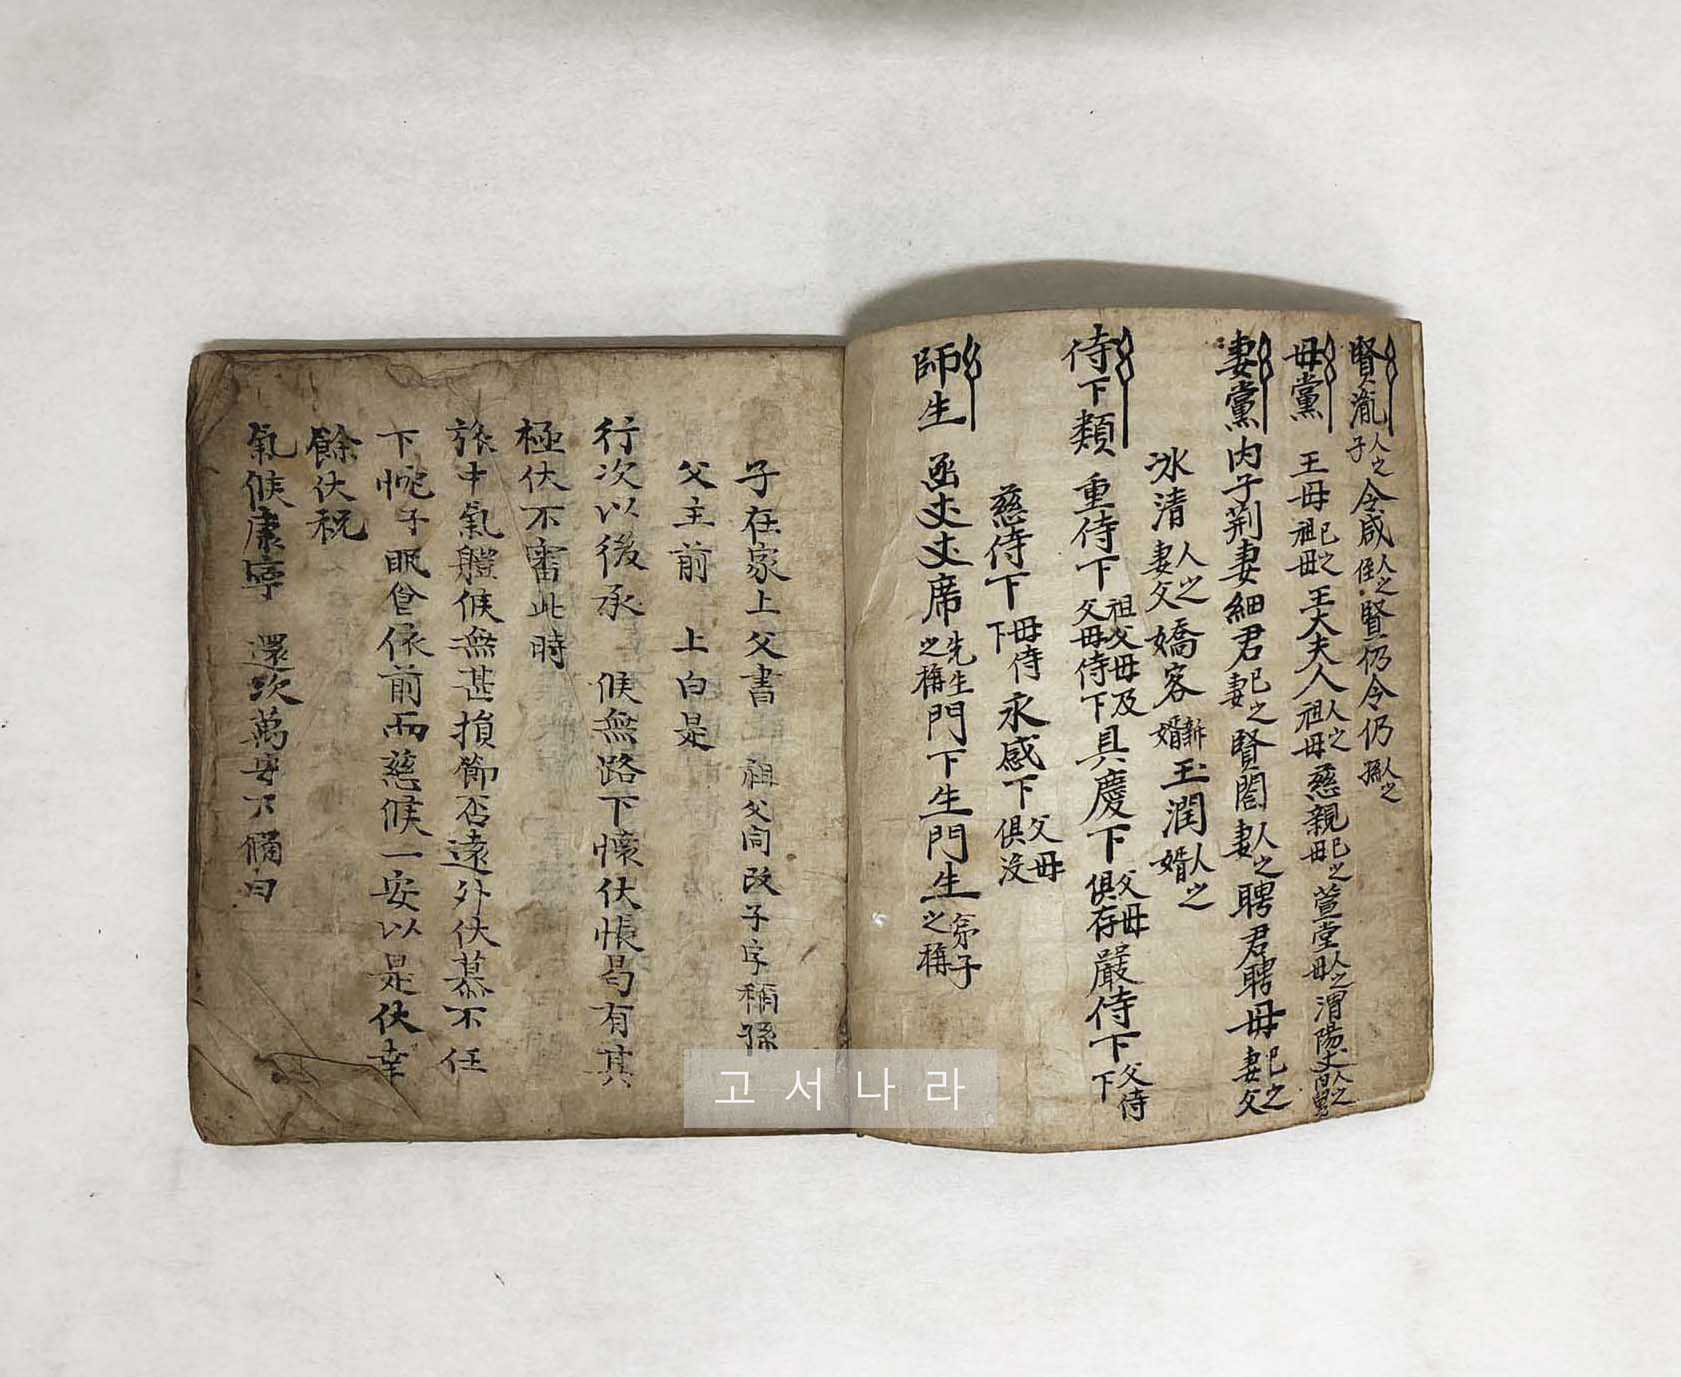 賢胤人之子令咸人之侄賢仍令仍人之孫
母黨 王母己之祖母王大夫人人之祖母慈親己之母萱堂人之母渭陽丈人之
妻黨內子荊妻細君己之妻賢閤人之妻聘君聘母己之妻父
氷清人之妻父嬌客新婿玉潤人之婿
侍下類 重侍下祖父母及父母侍下具慶下父母俱存嚴侍下父侍下
慈侍下母侍下永感下父母俱沒
師生 函丈丈席先生之稱門下生門生弟子之稱
子在家上父書 祖父同改子字稱孫
父主前 上白是
行次以後承 候無路下懷伏悵曷有其
極伏不審此時
旅中氣體候無甚損節否遠外伏慕不任
下忱子眠食依前而慈候一安以是伏幸
餘伏祝
氣候康寧 還次萬安不備白
고서나라